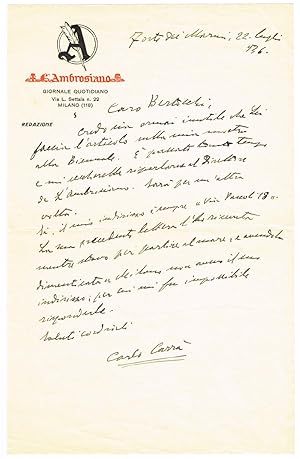 A
L'Ambrosiano
GIORNALE QUOTIDIANO
Via L. Settala n. 22
MILANO (118)
REDAZIONE
Forte dei Marmi, 22 luglio
Caro
Credo sia ormai inutile che Lei
faccia l'articolo sulla mia mostra
alla Biennale. È passato tempo
e mi riparlarne al Direttore
de L'Ambrosiano. Sarà per un'altra
volta.
Sì, il mio indirizzo è sempre "Via 18".
La sua precedente lettera l'ho ricevuta
mentre stavo per partire al mare, e avendola
dimenticata a Milano non avevo il suo
indirizzo; per cui mi fu impossibile
risponderle.
Saluti cordiali
Carlo Carrà